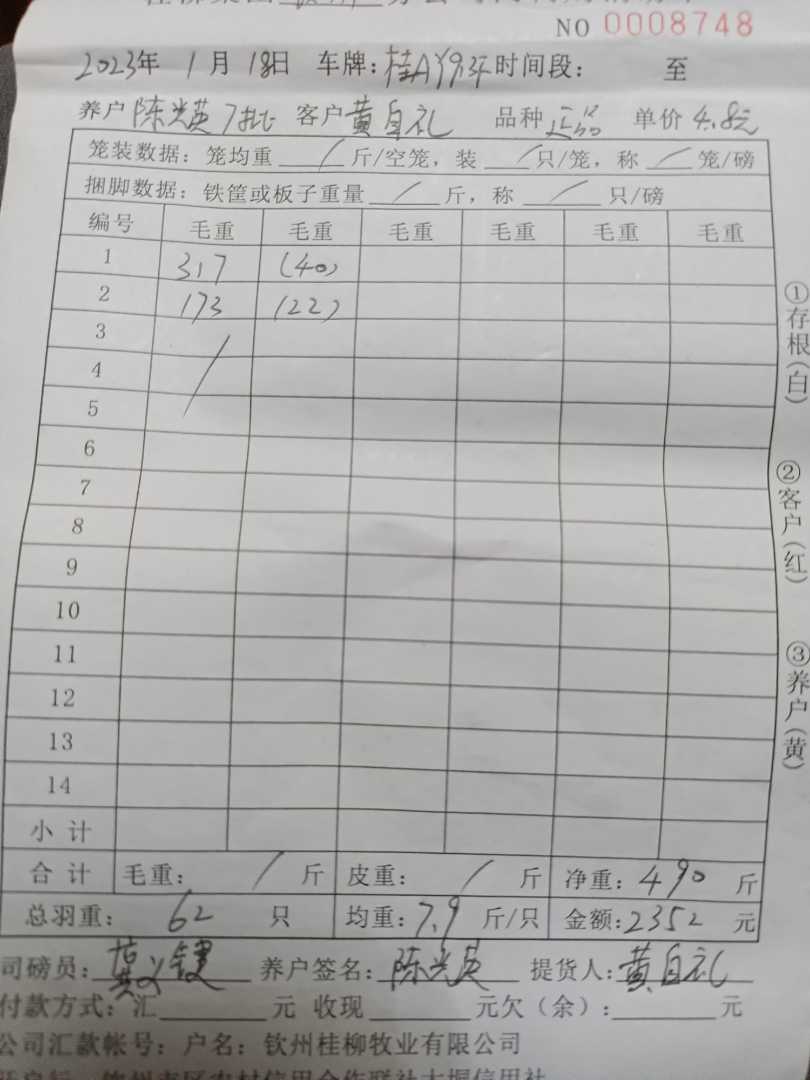 NO 0008748
2023年 1月 18日 车牌: 桂A 时间段: 至
养户 陈光英 7批 客户 黄自礼 品种 正品 单价 4.8元
笼装数据: 笼均重 / 斤/空笼, 装 / 只/笼, 称 / 笼/磅
捆脚数据: 铁筐或板子重量 / 斤, 称 / 只/磅
编号 毛重 毛重 毛重 毛重 毛重 毛重
1 317 (40)
2 173 (22)
3 /
4
5
6
7
8
9
10
11
12
13
14
小 计
合 计 毛重: / 斤 皮重: / 斤 净重: 490 斤
总羽重: 62 只 均重: 7.9 斤/只 金额: 2352 元
司磅员: 养户签名: 陈光英 提货人: 黄自礼
付款方式: 汇 元 收现 元欠(余): 元
公司汇款帐号: 户名: 钦州桂柳牧业有限公司
①存根(白)
②客户(红)
③养户(黄)